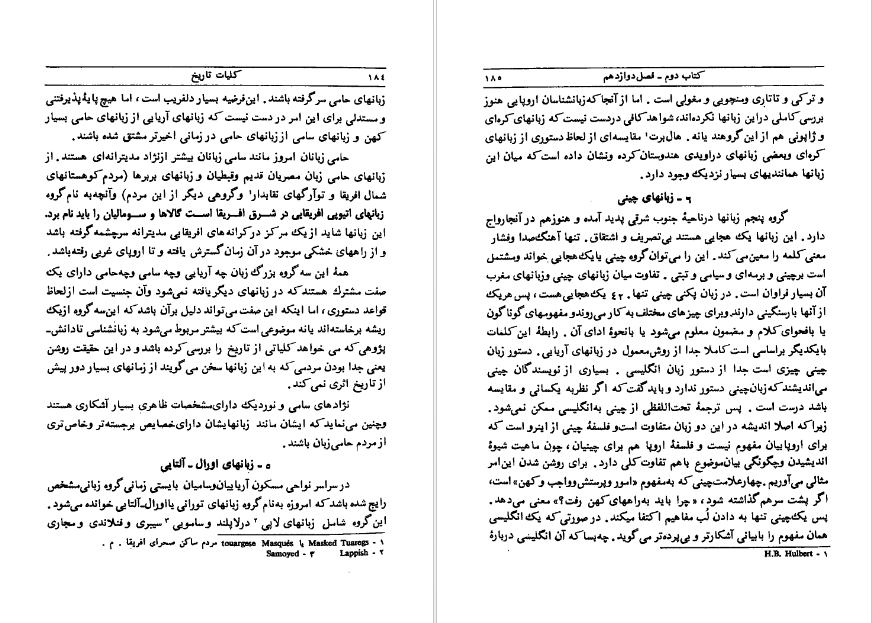 ۱۸۴ کلیات تاریخ
زبانهای حامی سرگرفته باشند . این‌فرضیه بسیار دلفریب است ، اما هیچ پایهٔ پذیرفتنی
و مستدلی برای این امر در دست نیست که زبانهای آریایی از زبانهای حامی بسیار
کهن و زبانهای سامی اززبانهای حامی در زمانی اخیرتر مشتق شده باشند .
حامی زبانان امروز مانند سامی زبانان بیشتر ازنژاد مدیترانه‌ای هستند . از
زبانهای حامی زبان مصریان قدیم وقبطیان و زبانهای بربرها (مردم‌کوهستانهای
شمال افریقا و توآرگهای نقابدار۱ وگروهی دیگر از این مردم) وآنچه‌به نام‌گروه
زبانهای اتیوپی افریقایی در شرق افریقا است گالاها و سومالیان را باید نام برد.
این زبانها شاید ازیک مرکز درکرانه‌های افریقایی مدیترانه سرچشمه‌گرفته باشد
و از راههای خشکی موجود درآن زمان گسترش یافته و تا اروپای غربی رفته‌باشد .
همهٔ این سه‌گروه بزرگ زبان چه آریایی وچه سامی وچه‌حامی دارای یک
صفت مشترک هستندکه در زبانهای دیگریافته نمی‌شود وآن جنسیت است ازلحاظ
قواعد دستوری ، اما اینکه این صفت می‌تواند دلیل برآن باشدکه این‌سه گروه ازیک
ریشه برخاسته‌اند یانه موضوعی است‌که بیشتر مربوط می‌شود به زبانشناسی تادانش–
پژوهی‌که می خواهد کلیاتی از تاریخ را بررسی‌کرده باشد و در این حقیقت روشن
یعنی جدا بودن مردمی‌که به این زبانها سخن می‌گویند از زمانهای بسیار دور پیش
از تاریخ اثری نمی‌کند .
نژادهای سامی و نوردیک دارای‌مشخصات ظاهری بسیار آشکاری هستند
وچنین می‌نمایدکه ایشان مانند زبانهایشان دارای‌خصایص برجسته‌تر وخاص‌تری
از مردم حامی‌زبان باشند .
۵ ـ زبانهای اورال ـ آلتایی
در سراسر نواحی مسکون آریاییان‌وسامیان بایستی زمانی گروه زبانی‌مشخص
رایج شده باشدکه امروزه به‌نام گروه زبانهای تورانی یااورال‌ـ‌آلتایی خوانده می‌شود .
این‌گروه شامل زبانهای لاپی ۲ درلاپلند وساموپی ۳ سیبری و فنلاندی و مجاری
۱ - touargese Masqués یا Masked Tuaregs مردم ساکن صحرای افریقا . م .
۲ - Lappish ۳ - Samoyed
۱۸۵ کتاب دوم ـ فصل دوازدهم
و ترکی و تاتاری ومنچویی و مغولی است . اما از آنجاکه‌زبانشناسان اروپایی هنوز
بررسی‌کاملی دراین زبانها نکرده‌اند، شواهدکافی دردست نیست‌که زبانهای‌کره‌ای
و ژاپونی هم از این‌گروهند یانه . هال‌برت۱ مقایسه‌ای از لحاظ دستوری از زبانهای
کره‌ای وبعضی زبانهای دراویدی هندوستان‌کرده ونشان داده است‌که میان این
زبانها همانندیهای بسیار نزدیک وجود دارد .
۶ ـ زبانهای چینی
گروه پنجم زبانها درناحیهٔ جنوب شرقی پدید آمده و هنوزهم در آنجارواج
دارد . این زبانها یک هجایی هستند بی‌تصریف و اشتقاق . تنها آهنگ‌صدا وفشار
معنی کلمه را معین‌می‌کند . این را می‌توان‌گروه چینی یایک‌هجایی خواند ومشتمل
است برچینی و برمه‌ای و سیامی و تبتی . تفاوت میان زبانهای چینی وزبانهای مغرب
آن بسیار فراوان است . در زبان پکنی چینی تنها ۴۲۰ یک‌هجایی‌هست ، پس هریک
از آنها بارسنگینی دارند وبرای چیزهای مختلف به‌کار می‌روند و مفهومهای گوناگون
یا بافحوای‌کلام و مضمون معلوم می‌شود یا بانحوهٔ ادای آن . رابطهٔ این کلمات
بایکدیگر براساسی است‌کاملا جدا از روش‌معمول در زبانهای آریایی . دستور زبان
چینی چیزی است جدا از دستور زبان انگلیسی . بسیاری از نویسندگان چینی
می‌اندیشندکه زبان‌چینی دستور ندارد و بایدگفت‌که اگر نظربه یکسانی و مقایسه
باشد درست است . پس ترجمهٔ تحت‌اللفظی از چینی به‌انگلیسی ممکن نمی‌شود .
زیراکه اصلا اندیشه در این دو زبان متفاوت‌است‌وفلسفهٔ چینی از اینرو است که
برای اروپاییان مفهوم نیست و فلسفهٔ اروپا هم برای چینیان، چون ماهیت شیوهٔ
اندیشیدن وچگونگی بیان‌موضوع باهم تفاوت کلی دارد . برای روشن شدن این‌امر
مثالی می‌آوریم .چهارعلامت‌چینی که به‌مفهوم «امور وپرستش‌وواجب و کهن» است،
اگر پشت سرهم‌گذاشته شود ، «چرا باید به‌راههای کهن رفت؟» معنی می‌دهد .
پس یک‌چینی تنها به دادن لُب مفاهیم اکتفا میکند . در صورتی‌که یک انگلیسی
همان مفهوم را بابیانی آشکارتر و بی‌پرده‌تر می‌گوید . چه‌بساکه آن انگلیسی دربارهٔ
۱ - H.B. Hulbert